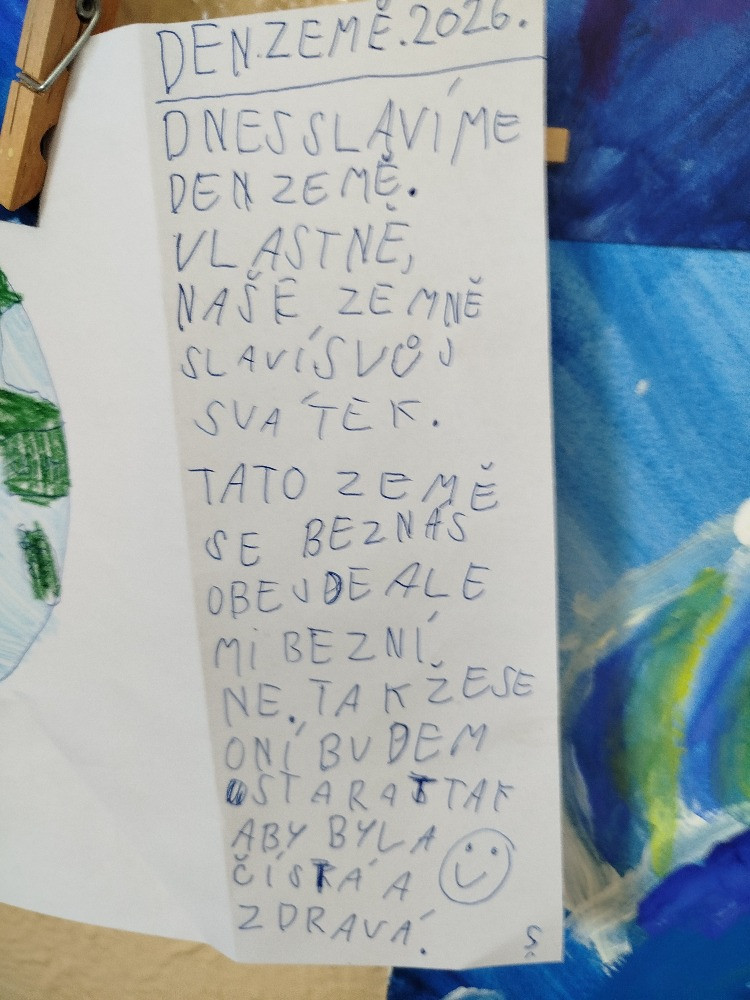 DEN.ZEMĚ.2026.
DNES SLAVÍME
DEN ZEMĚ.
VLASTNĚ,
NAŠE ZEMNĚ
SLAVÍ SVŮJ
SVÁTEK.
TATO ZEMĚ
SE BEZ NÁS
OBEJDE ALE
MI BEZ NÍ
NE. TAK ŽE SE
O NÍ BUDEM
STARAT TAK
ABY BYLA
ČÍSTÁ A
ZDRAVÁ.
Š